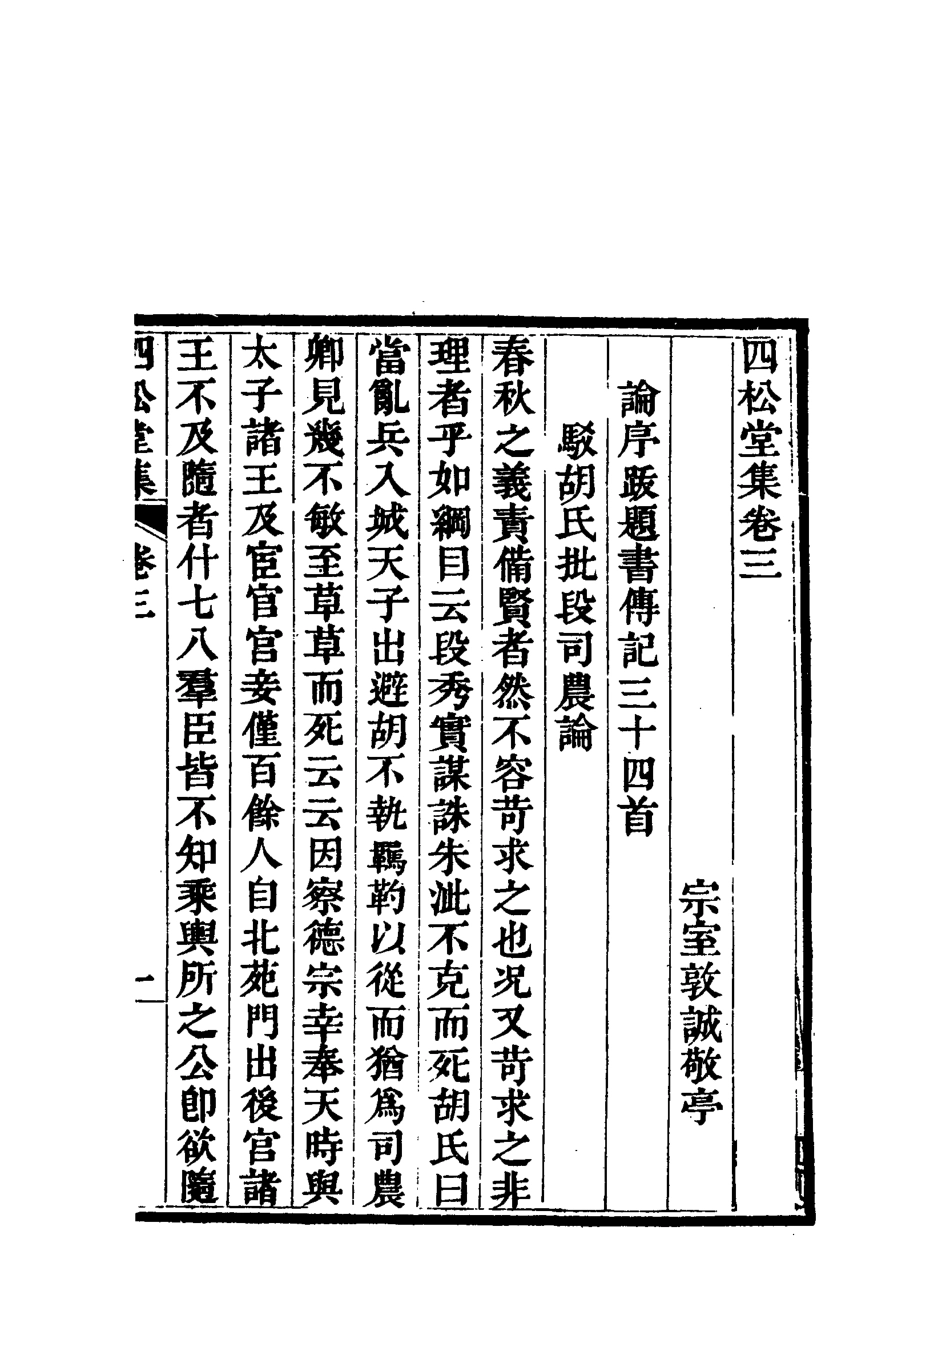 四松堂集卷三
宗室敦誠敬亭
論序跋題書傳記三十四首
駁胡氏批段司農論
春秋之義責備賢者然不容苛求之也况又苛求之非
理者乎如綱目云段秀實謀誅朱泚不克而死胡氏曰
當亂兵入城天子出避胡不執羈靮以從而猶爲司農
卿見幾不敏至草草而死云云因察德宗幸奉天時與
太子諸王及宦官宮妾僅百餘人自北苑門出後宮諸
王不及隨者什七八羣臣皆不知乘輿所之公卽欲隨
四松堂集 卷三 一